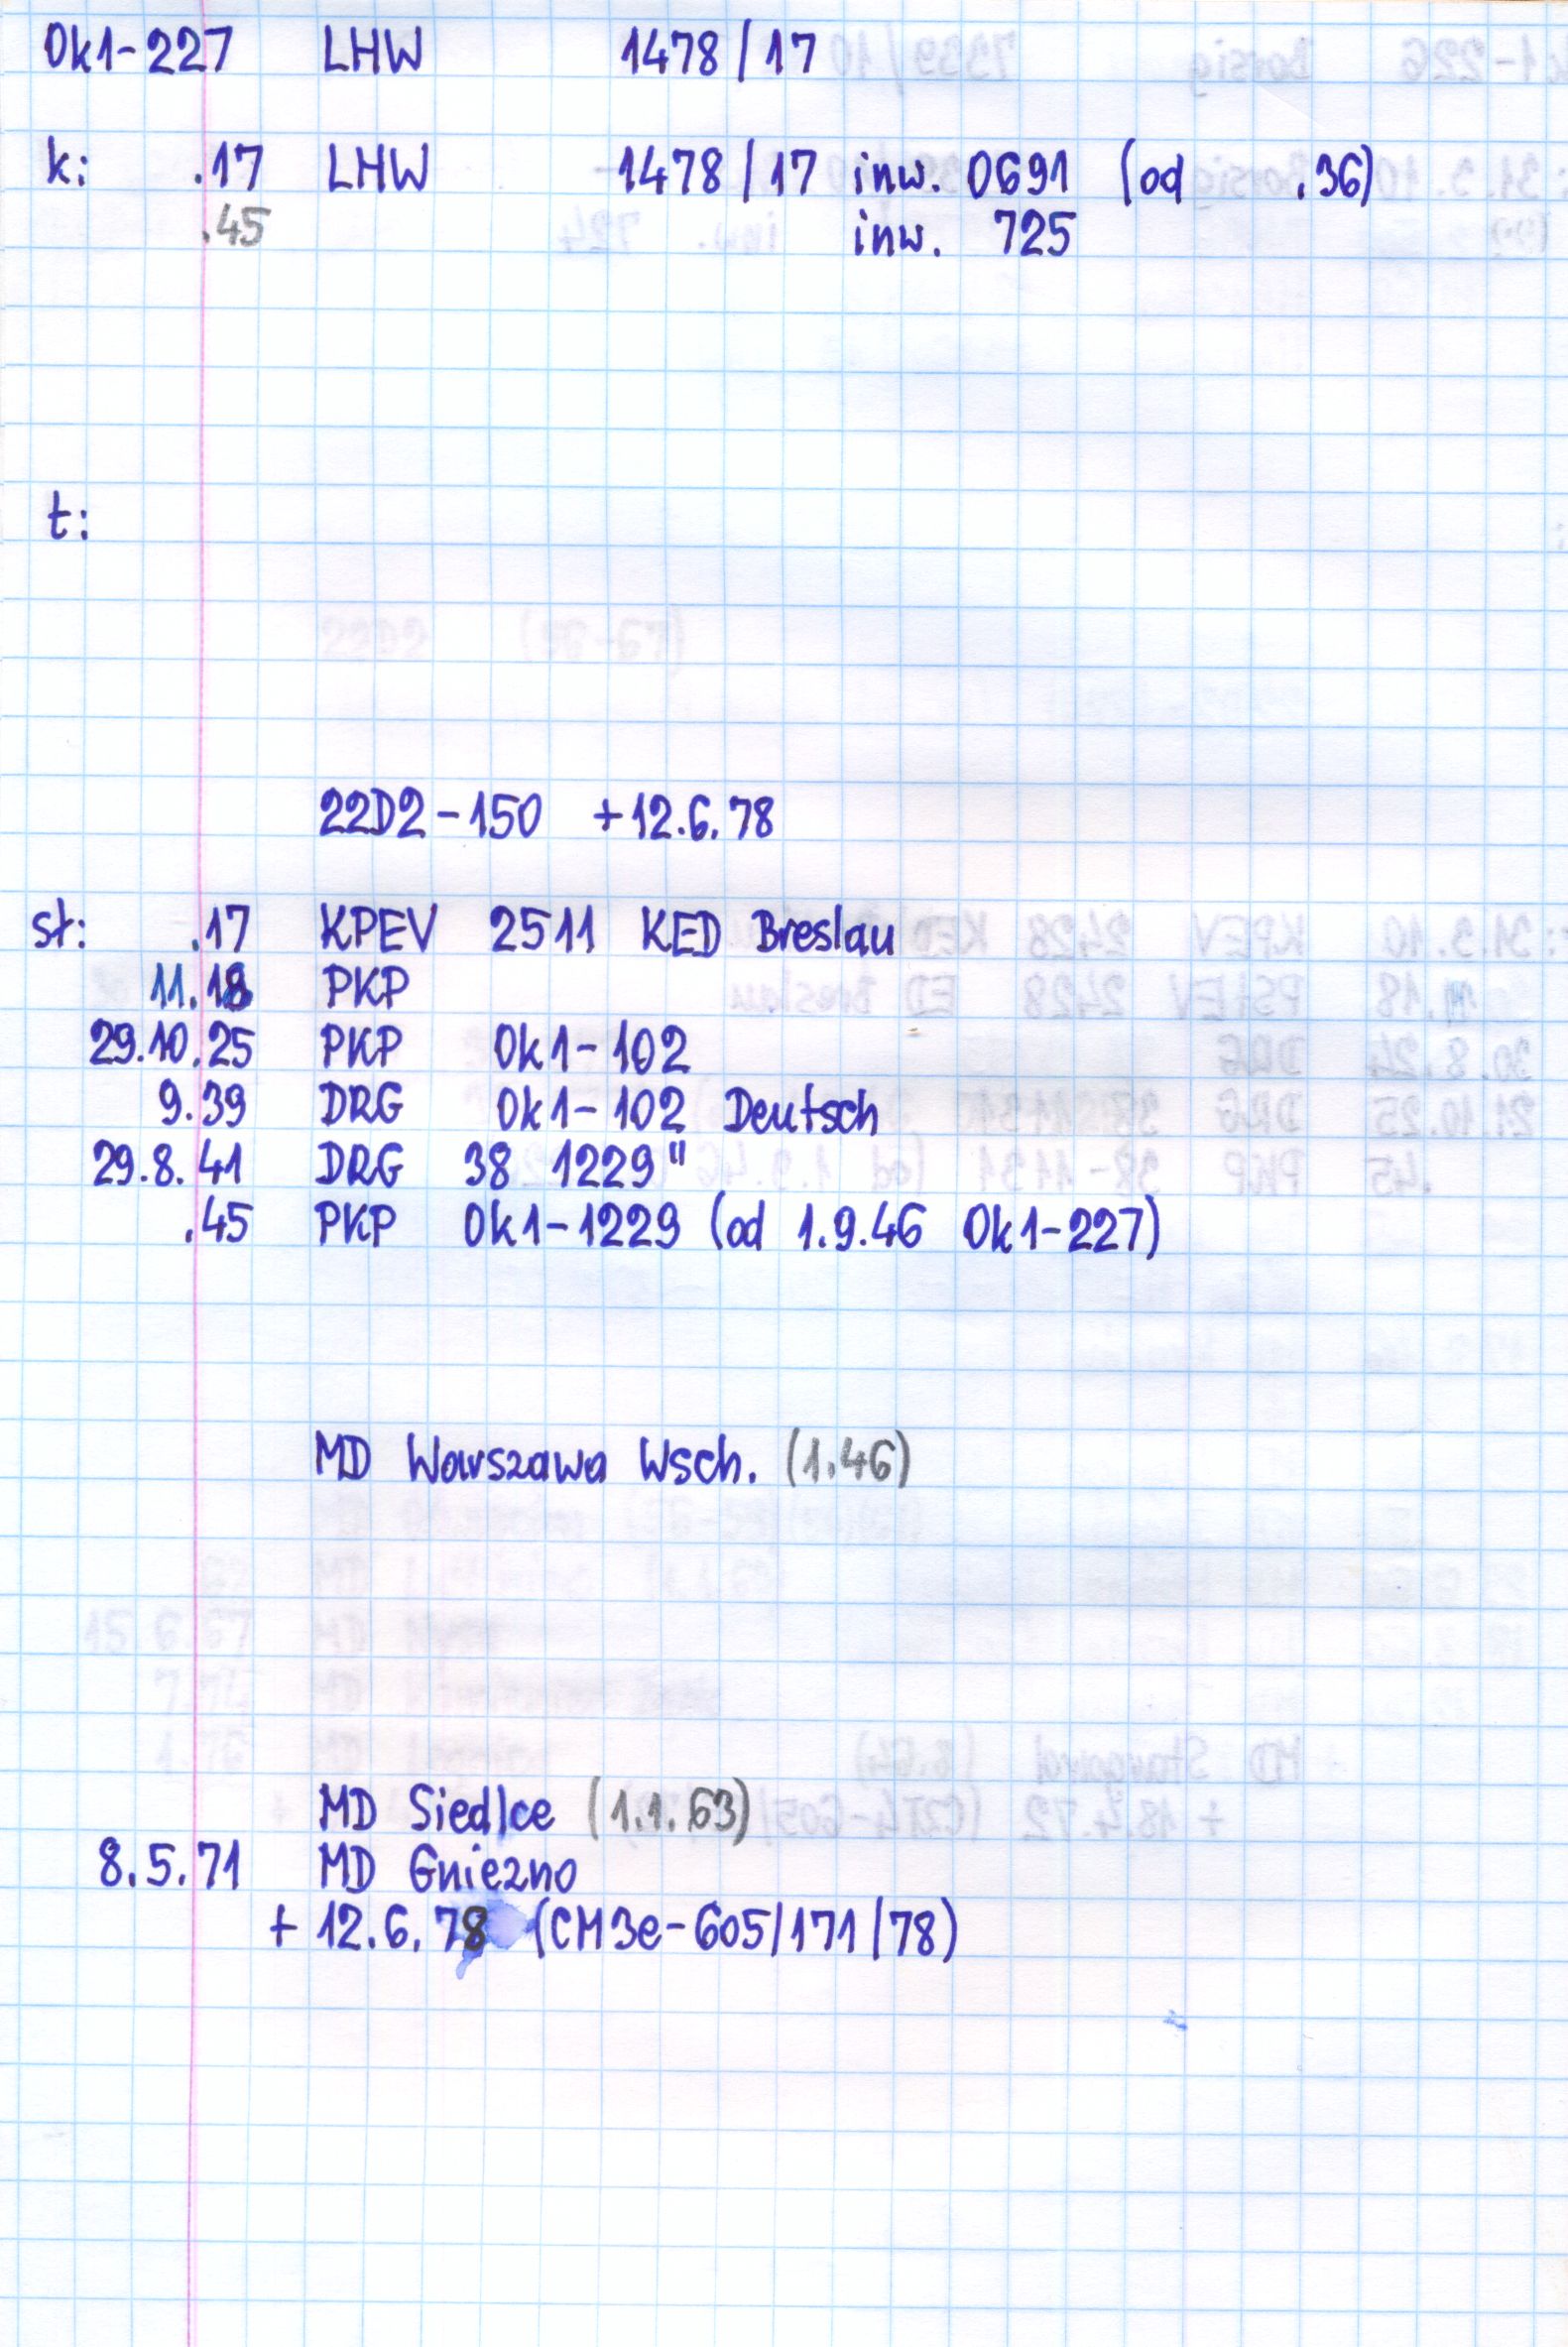 Ok1-227 LHW 1478/17
k: .17 LHW 1478/17 inw. 0691 (od .36)
.45 inw. 725
t:
22D2-150 +12.6.78
st: .17 KPEV 2511 KED Breslau
11.18 PKP
29.10.25 PKP Ok1-102
9.39 DRG Ok1-102 Deutsch
29.8.41 DRG 38 1229"
.45 PKP Ok1-1229 (od 1.9.46 Ok1-227)
MD Warszawa Wsch. (1.46)
MD Siedlce (1.1.63)
8.5.71 MD Gniezno
+ 12.6.78 (CM3e-605/171/78)